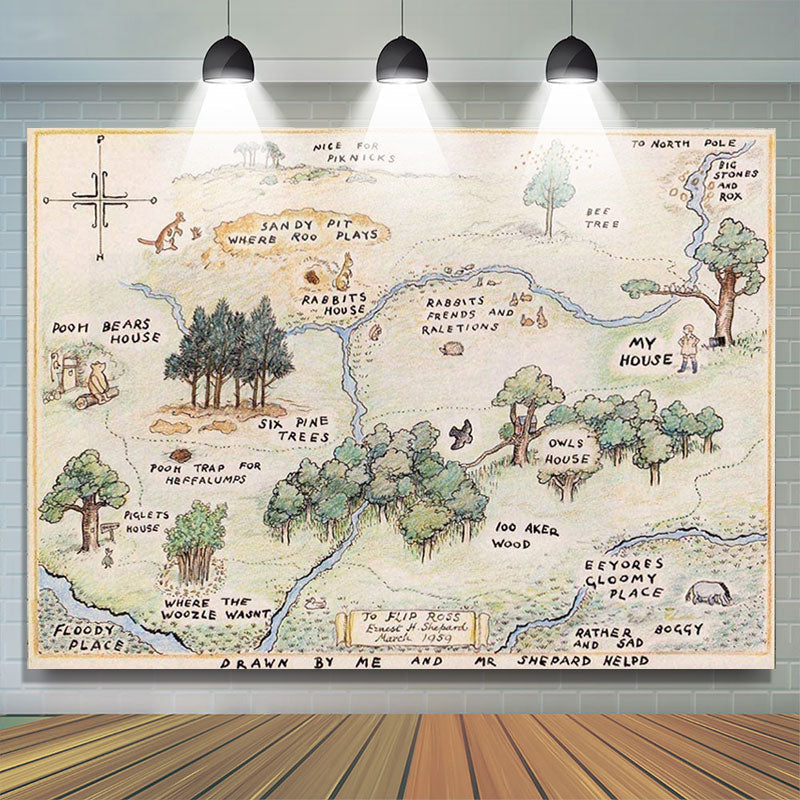 P
N
NICE FOR
PIKNICKS
TO NORTH POLE
BIG
STONES
AND
ROX
SANDY PIT
WHERE ROO PLAYS
BEE
TREE
RABBITS
HOUSE
RABBITS
FRENDS AND
RALETIONS
POOH BEARS
HOUSE
MY
HOUSE
SIX PINE
TREES
OWLS
HOUSE
POOH TRAP FOR
HEFFALUMPS
PIGLETS
HOUSE
100 AKER
WOOD
EEYORES
GLOOMY
PLACE
WHERE THE
WOOZLE WASNT
FLOODY
PLACE
TO FLIP ROSS
Ernest H. Shepard
March 1959
RATHER BOGGY
AND SAD
DRAWN BY ME AND MR SHEPARD HELPD